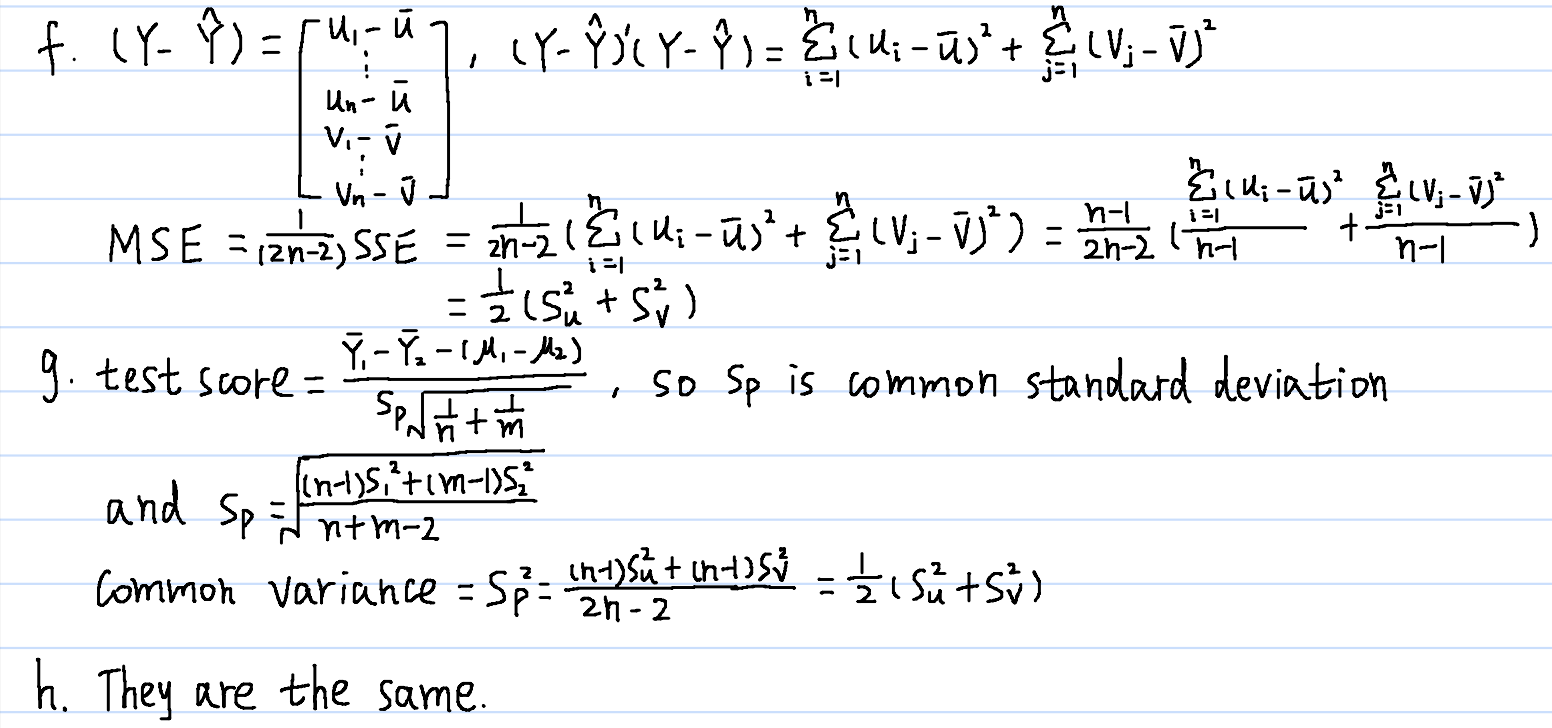 f. (Y - Ŷ) = [u₁ - ū ⋮ uₙ - ū v₁ - v̄ ⋮ vₙ - v̄], (Y - Ŷ)'(Y - Ŷ) = Σⁿᵢ₌₁(uᵢ - ū)² + Σⁿⱼ₌₁(Vⱼ - V̄)²
MSE = 1/(2n-2) SSE = 1/(2n-2) (Σⁿᵢ₌₁(uᵢ - ū)² + Σⁿⱼ₌₁(Vⱼ - V̄)²) = (n-1)/(2n-2) (Σⁿᵢ₌₁(uᵢ - ū)²/(n-1) + Σⁿⱼ₌₁(Vⱼ - V̄)²/(n-1))
= 1/2 (S²ᵤ + S²ᵥ)
g. test score = (Ȳ₁ - Ȳ₂ - (μ₁ - μ₂))/(Sp√(1/n + 1/m)), so Sp is common standard deviation
and Sp = √(((n-1)S₁² + (m-1)S₂²)/(n+m-2))
Common variance = Sp² = ((n-1)S²ᵤ + (n-1)S²ᵥ)/(2n-2) = 1/2 (S²ᵤ + S²ᵥ)
h. They are the same.